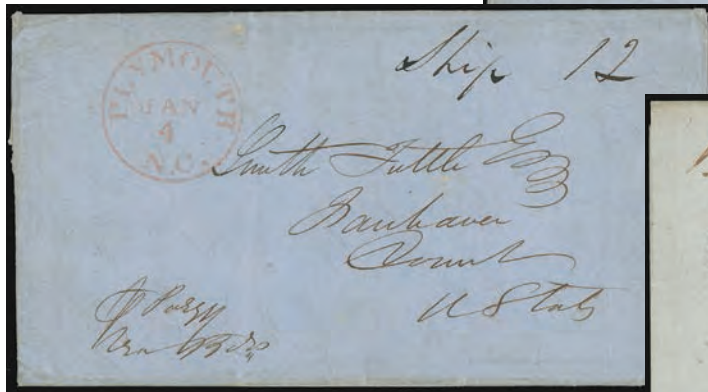 PLYMOUTH
JAN
4
N.C.
Ship 12
Smith Tuttle Esq
Fairhaven
Connt
U States